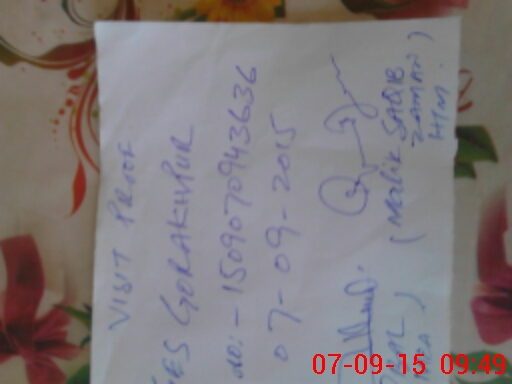 VISIT PROOF
GORAKHPUR
no:- 1509070943636
07-09-2015
(Malik SAQIB
ZAMAN)
HIM.
07-09-15 09:49